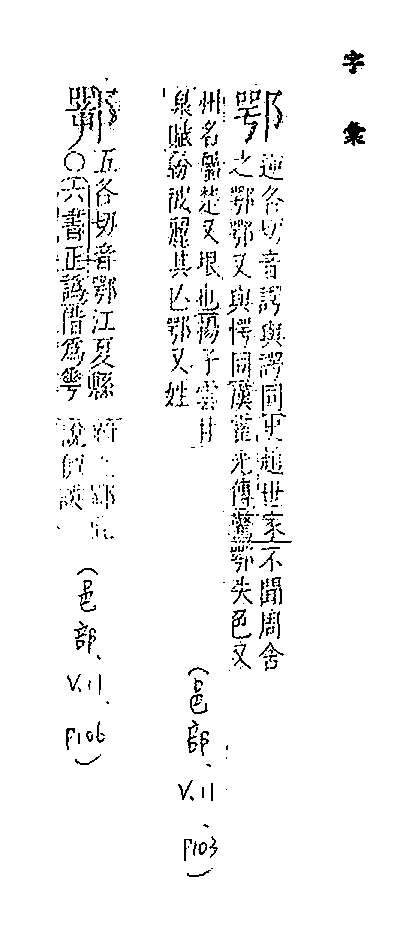 字彙
鄂
逆各切音諤與諤同史趙世家不聞周舍
之鄂鄂又與愕同漢霍光傳驚鄂失色又
州名屬楚又垠也揚子雲甘
泉賦紛被麗其亡鄂又姓
(邑部、V.11、P103)
五各切音鄂江夏縣
〇六書正譌借為咢
(邑部、V.11、P106)